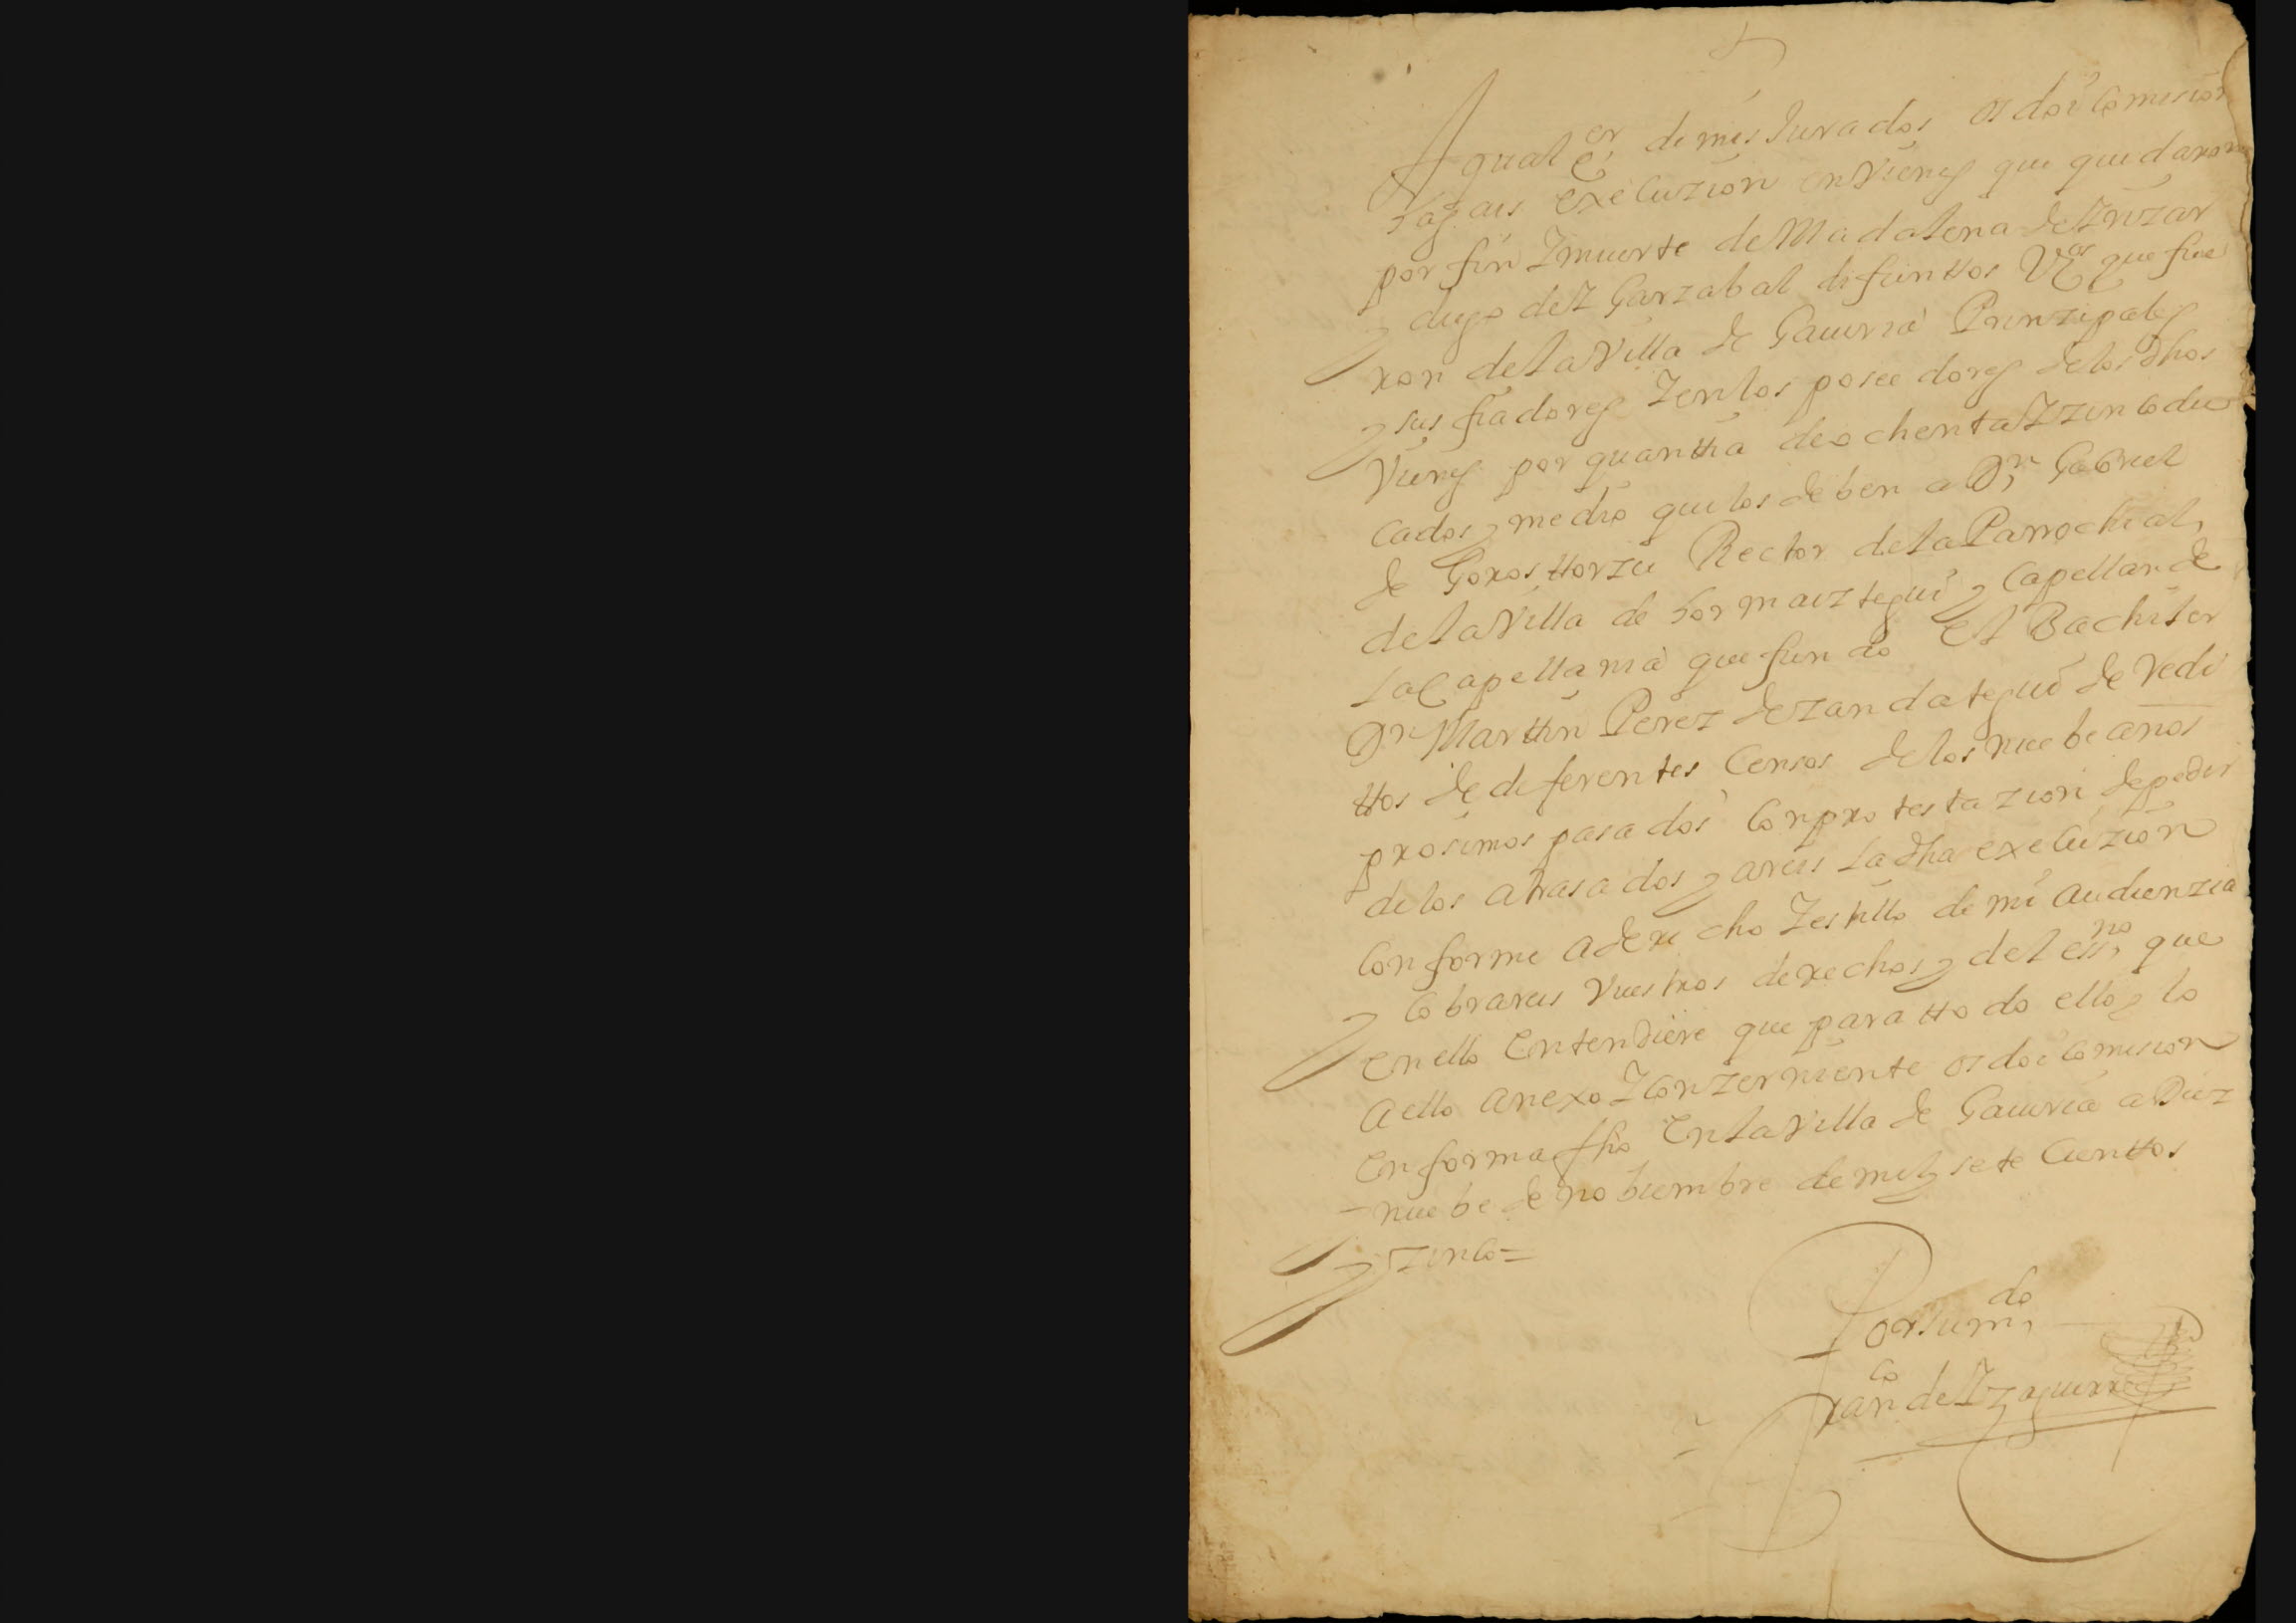 A qualqer de mis Jurados os doi comision
hagais execuzion en Vienes que quedaron
por fin I muerte de Madalena de Inzar
y diego de IGarzabal difunttos Vos que fue
ron de la Villa de Gauiria Prinzipales
y sus fiadores I en los poseedores de los dhos
Vienes por quanttia de ochenta I zinco du
cados y medio que los deben a Dn Gabriel
de Gorosttorzu Rector de la Parrochial
de la Villa de hormaiztegui y Capellan de
la Capellania que fundo El Bachiler
Dn Marttin Perez de zandategui de redi
ttos de diferentes Censos de los nuebe años
prosimos pasados con protestazion de pedir
de los atrasados y areis la dha execuzion
conforme a derecho I estillo de mi audienzia
y cobrareis vuestros derechos y del essno que
en ello Entendiere que para ttodo ello y lo
a ello anexo I conzerniente os doi comision
En forma fho En la Villa de Gauiria a Diez
nuebe de nobiembre de mil y sete Cienttos
y zinco=
Por su mdo
Franco de Izaguirre